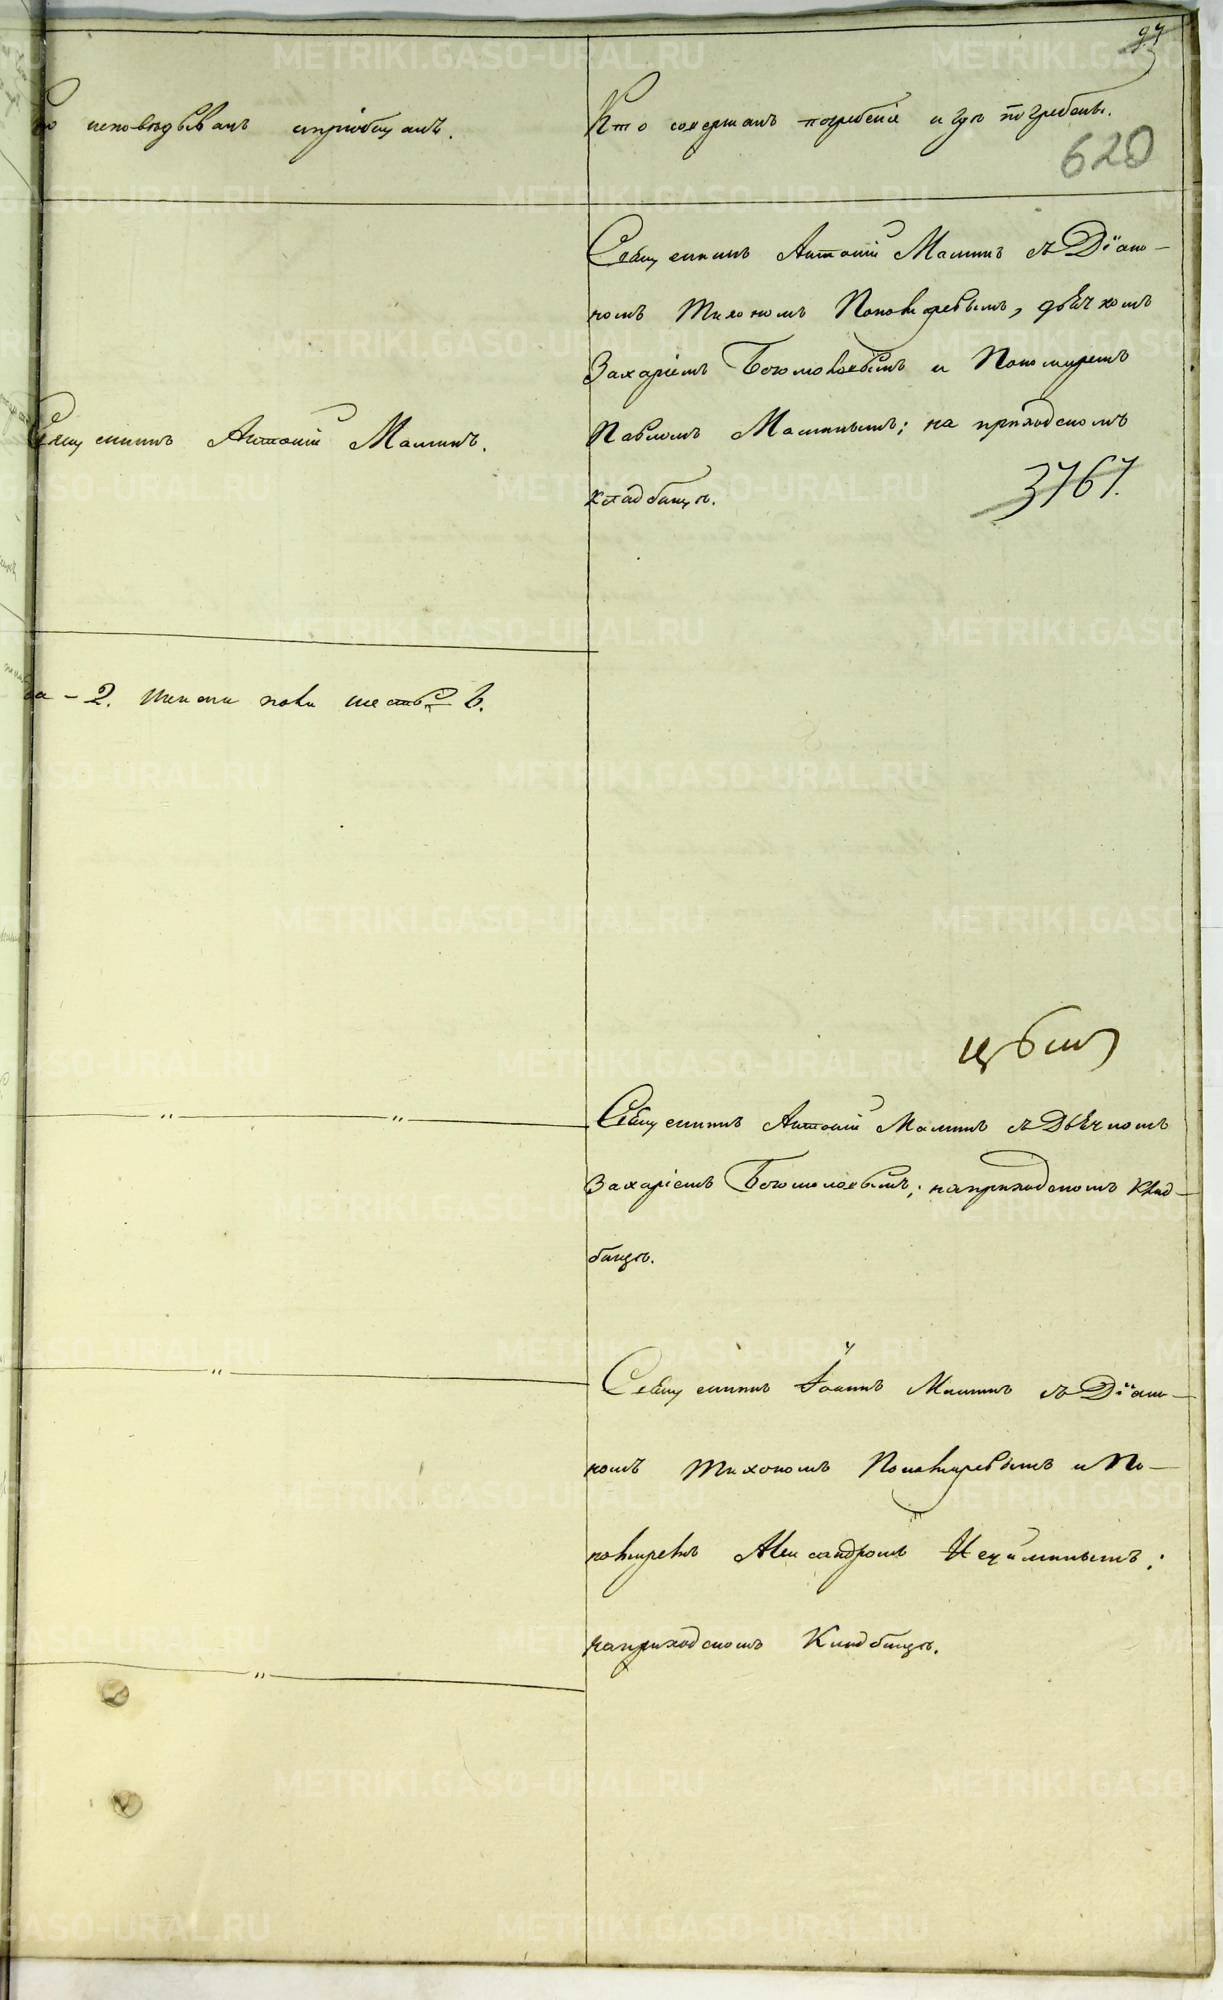 97
Кто исповѣдывалъ и пріобщалъ.
Кто совершалъ погребеніе и гдѣ погребены.
620
Священникъ Антоній Маминъ.
Священникъ Антоній Маминъ съ Діако-
номъ Тихономъ Пономаревымъ, дьячкомъ
Захаріемъ Богомоловымъ и Пономаремъ
Павломъ Маминымъ; на приходскомъ
кладбищѣ.
3767.
– 2. Итого
6.
Священникъ Антоній Маминъ съ Дьячкомъ
Захаріемъ Богомоловымъ; на приходскомъ Клад-
бищѣ.
Священникъ Іоаннъ Маминъ съ Діако-
номъ Тихономъ Пономаревымъ и По-
номаремъ Александромъ
на приходскомъ Кладбищѣ.
METRIKI.GASO-URAL.RU